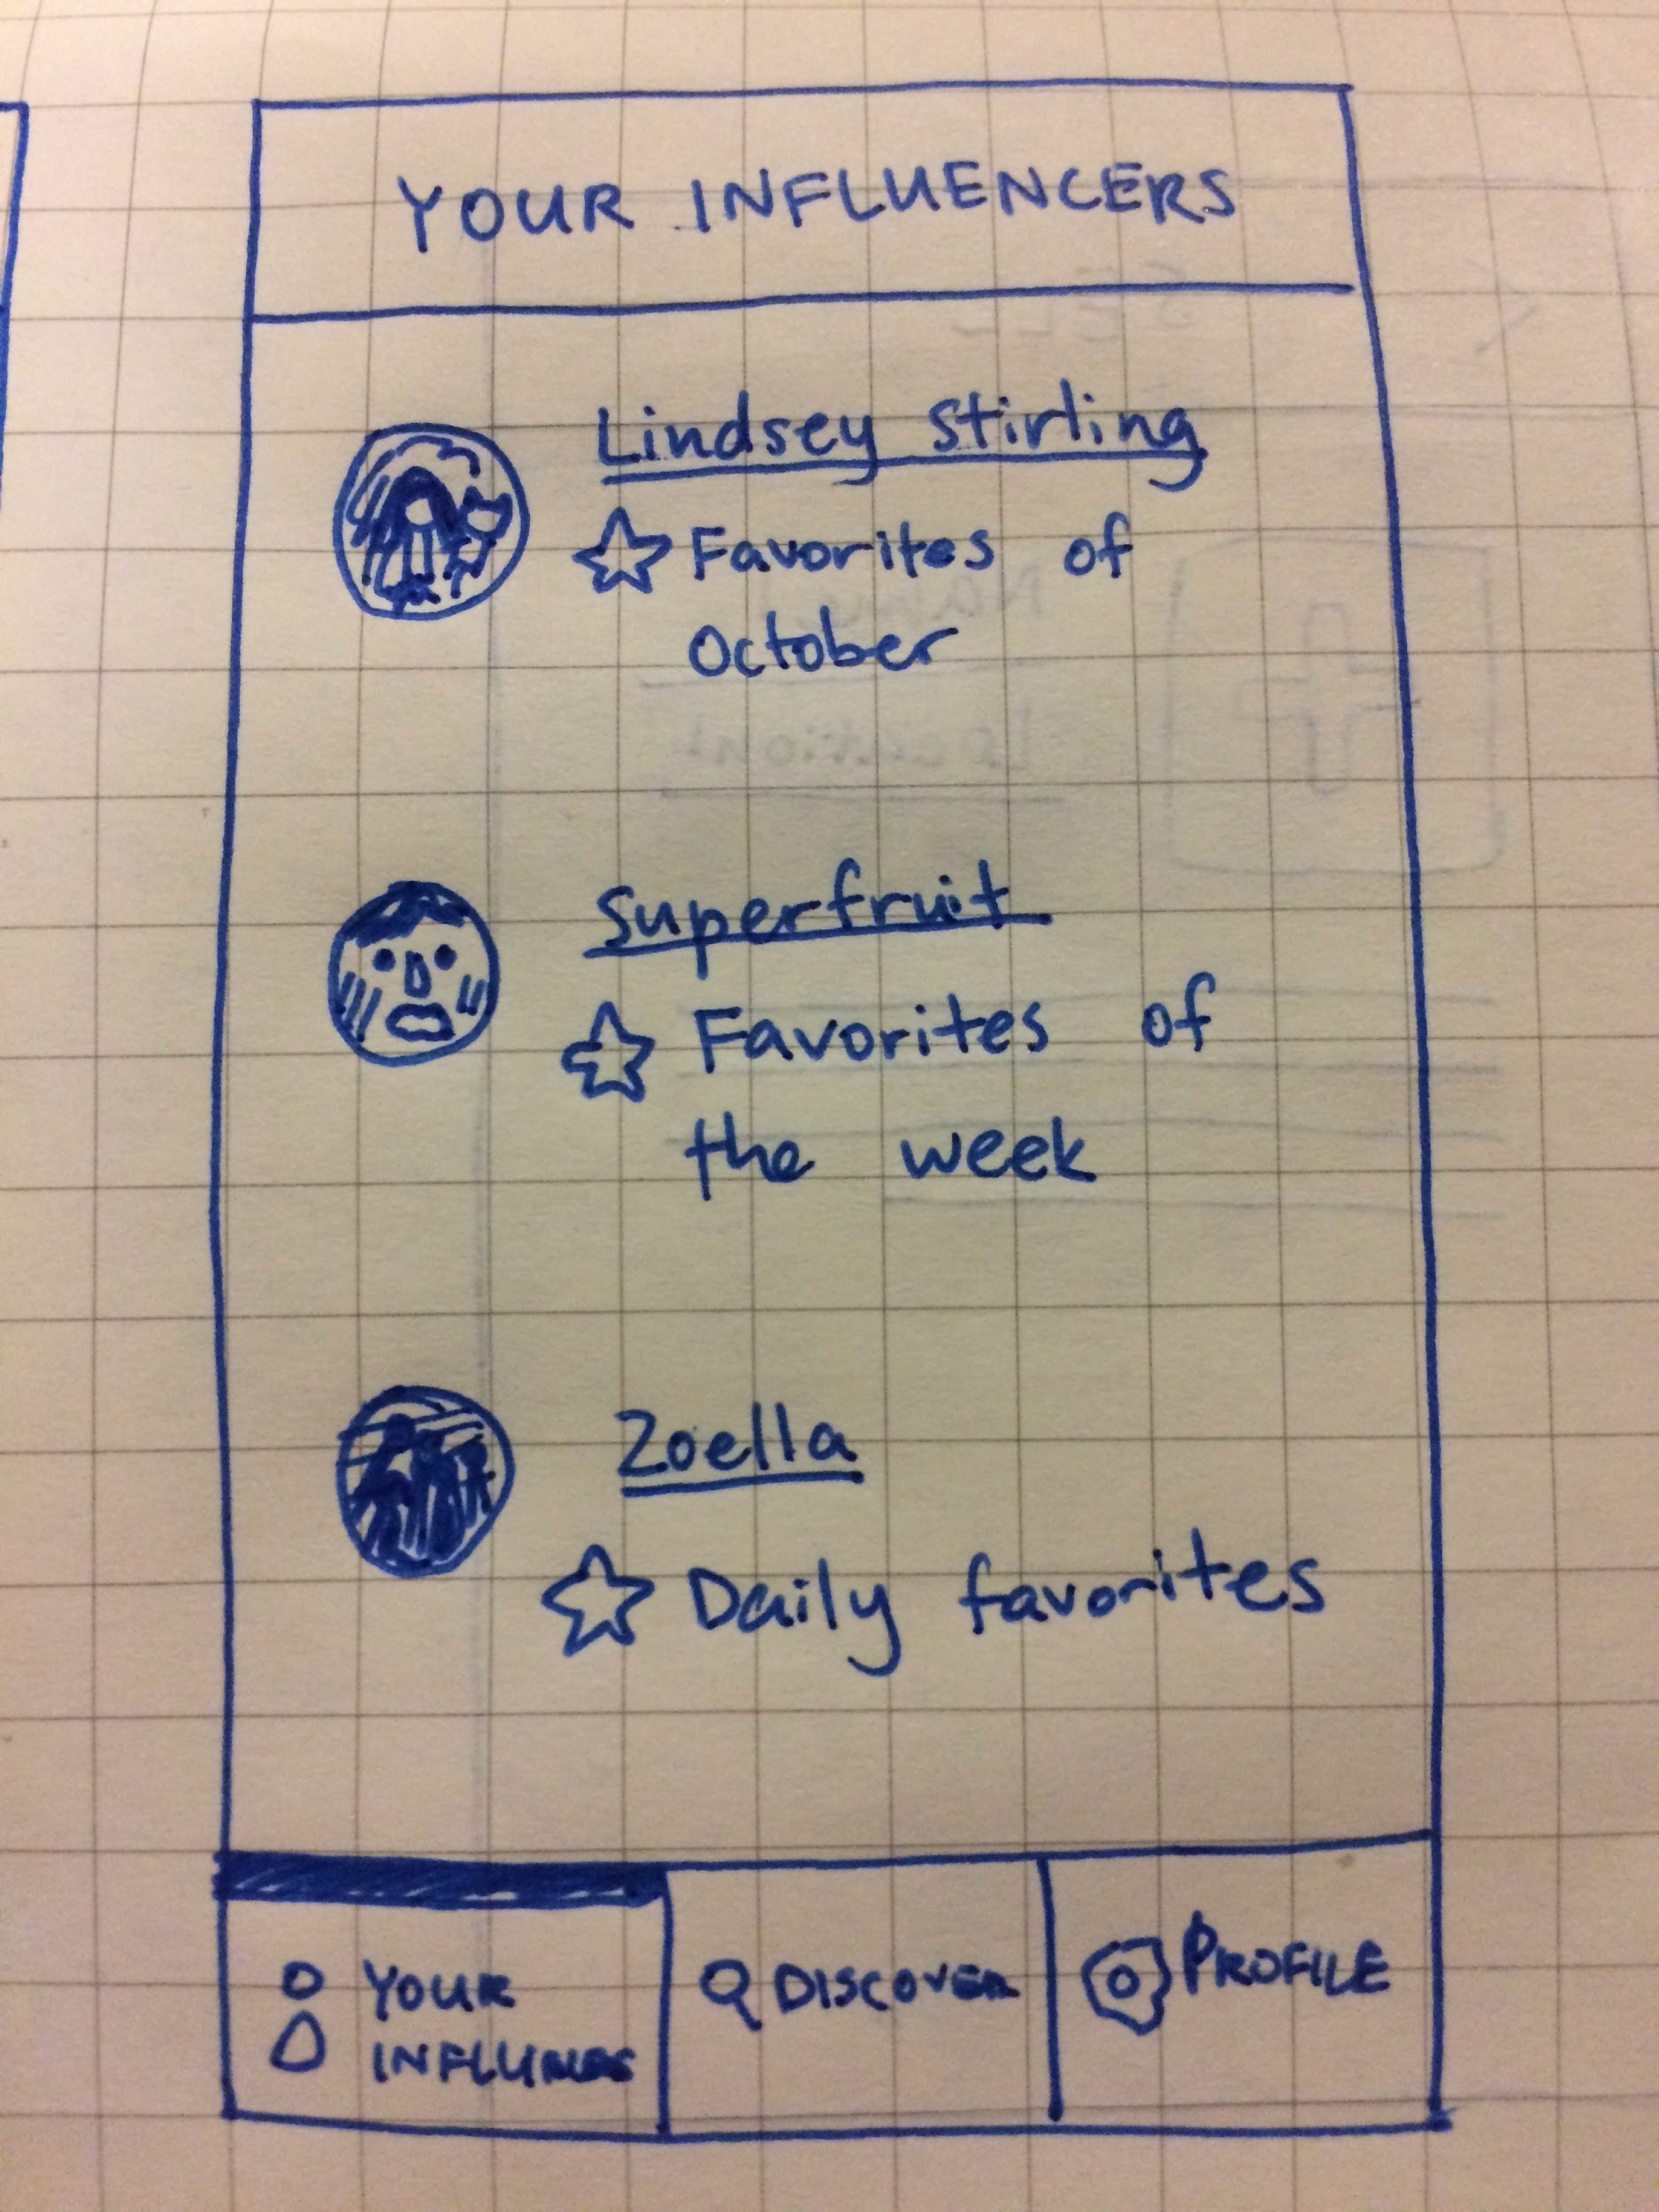 YOUR INFLUENCERS
Lindsey Stirling
Favorites of
October
Superfruit
Favorites of
the week
Zoella
Daily favorites
YOUR
DISCOVER
PROFILE
SELL
Name
Location